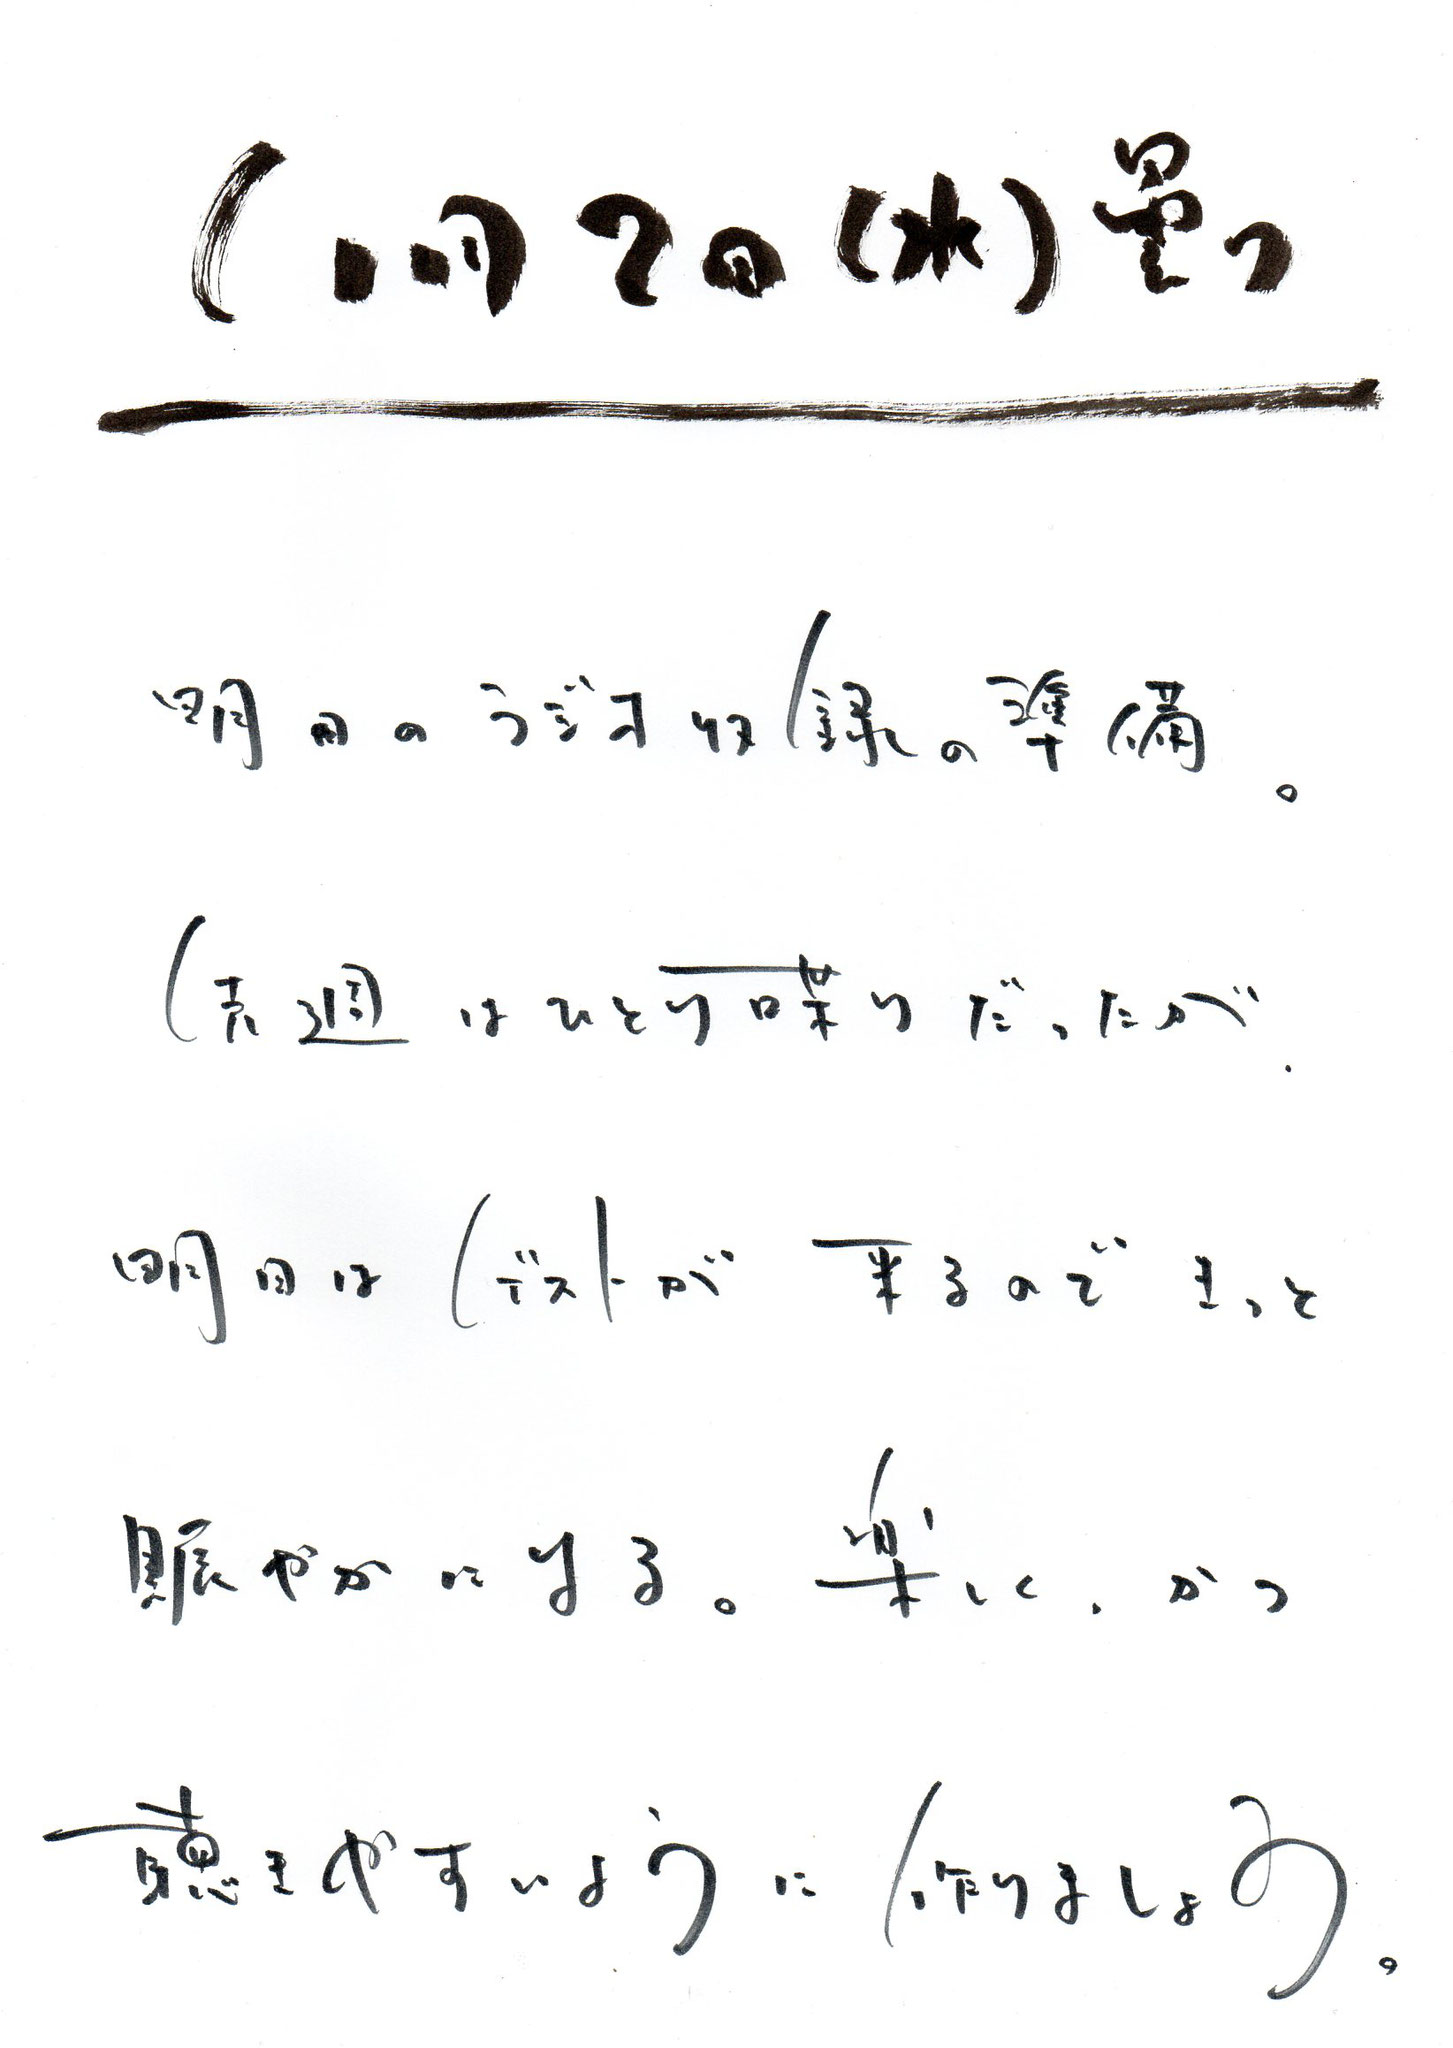 11月2日(水)曇り
明日のラジオ収録の準備。
先週はひとり喋りだったが、
明日はゲストが来るのできっと
賑やかになる。楽しく、かつ
聴きやすいように作りましょう。